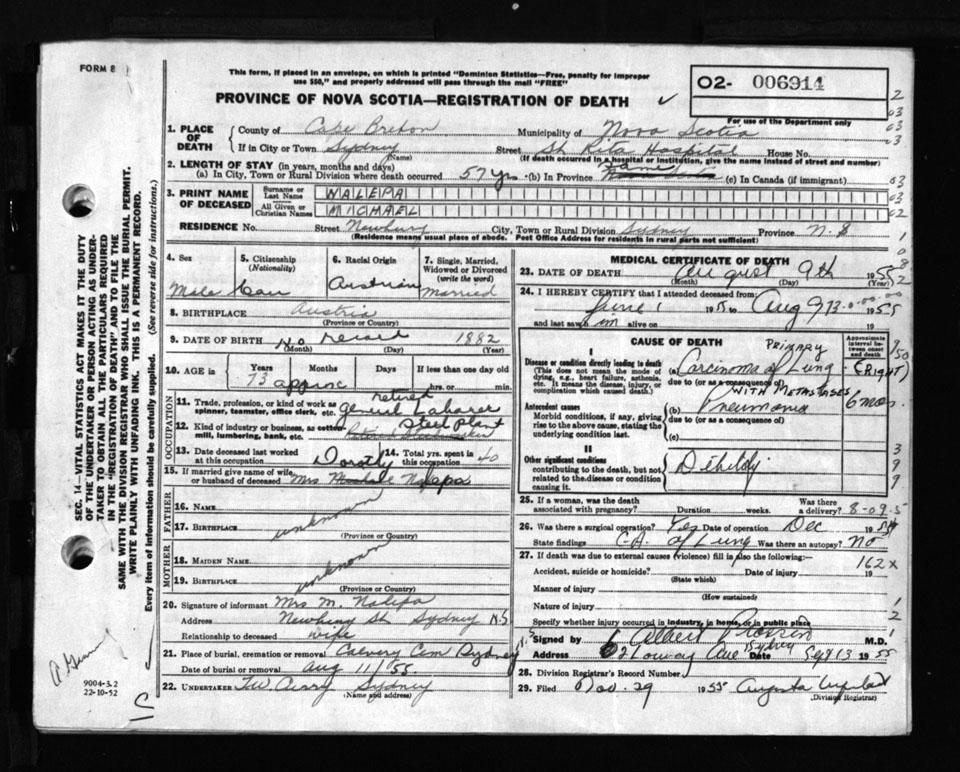 FORM 8
This form, if placed in an envelope, on which is printed "Dominion Statistics—Free, penalty for improper
use $50," and properly addressed will pass through the mail "FREE"
O2- 006914
PROVINCE OF NOVA SCOTIA—REGISTRATION OF DEATH ✓
For use of the Department only
1. PLACE OF DEATH { County of Cape Breton Municipality of Nova Scotia
If in City or Town Sydney Street St Rita Hospital House No.
(Name) (If death occurred in a hospital or institution, give the name instead of street and number)
2. LENGTH OF STAY (in years, months and days)
(a) In City, Town or Rural Division where death occurred 57 yrs (b) In Province Same (c) In Canada (if immigrant)
3. PRINT NAME OF DECEASED { Surname or Last Name NALEPA
All Given or Christian Names MICHAEL
RESIDENCE No. Street City, Town or Rural Division Sydney Province N.S
(Residence means usual place of abode. Post Office Address for residents in rural parts not sufficient)
4. Sex Male
5. Citizenship (Nationality) Can
6. Racial Origin Austrian
7. Single, Married, Widowed or Divorced (write the word) Married
8. BIRTHPLACE Austria
(Province or Country)
9. DATE OF BIRTH No record 1882
(Month) (Day) (Year)
10. AGE in { Years Months Days If less than one day
73 approx hrs. or min.
OCCUPATION
11. Trade, profession, or kind of work as spinner, teamster, office clerk, etc. retired General Laborer
12. Kind of industry or business, as cotton mill, lumbering, bank, etc. Steel Plant
13. Date deceased last worked at this occupation
14. Total yrs. spent in this occupation 40
15. If married give name of wife or husband of deceased Mrs Dorothy Nalepa
FATHER
16. Name
17. Birthplace unknown
(Province or Country)
MOTHER
18. Maiden Name
19. Birthplace unknown
(Province or Country)
20. Signature of informant Mrs M. Nalepa
Address St Sydney N.S
Relationship to deceased wife
21. Place of burial, cremation or removal Calvery Cem Sydney N.S
Date of burial or removal Aug 11/55
22. Undertaker T.W. Curry Sydney
(Name and address)
MEDICAL CERTIFICATE OF DEATH
23. DATE OF DEATH August 9th 1955
(Month) (Day) (Year)
24. I HEREBY CERTIFY that I attended deceased from
June 1 1955 to Aug 9 1955
and last saw him alive on 19
CAUSE OF DEATH
Approximate interval between onset and death
I
Disease or condition directly leading to death
(This does not mean the mode of dying, e.g., heart failure, asthma, etc. It means the disease, injury, or complication which caused death.)
Primary
(a) Carcinoma of Lung - (Right)
due to (or as a consequence of)
WITH METASTASES
Antecedent causes
Morbid conditions, if any, giving rise to the above cause, stating the underlying condition last.
(b) Pneumonia 6 mos.
due to (or as a consequence of)
(c)
II
Other significant conditions
contributing to the death, but not related to the disease or condition causing it.
Debility
25. If a woman, was the death associated with pregnancy? Duration weeks. Was there a delivery?
26. Was there a surgical operation? Yes Date of operation Dec 1954
State findings C.A. of Lung Was there an autopsy? No
27. If death was due to external causes (violence) fill in also the following:—
Accident, suicide or homicide? Date of injury 19 162x
(State which)
Manner of injury
(How sustained)
Nature of injury
Specify whether injury occurred in industry, in home, or in public place
Signed by Albert M.D.
Address 62 Ave Sydney Date Sept 13 1955
28. Division Registrar's Record Number
29. Filed Nov. 29 1955 Augusta
(Division Registrar)
SEC. 14—VITAL STATISTICS ACT MAKES IT THE DUTY
OF THE UNDERTAKER OR PERSON ACTING AS UNDER-
TAKER TO OBTAIN ALL THE PARTICULARS REQUIRED
IN THE "REGISTRATION OF DEATH" AND TO FILE THE
SAME WITH THE DIVISION REGISTRAR WHO SHALL ISSUE THE BURIAL PERMIT.
WRITE PLAINLY WITH UNFADING INK. THIS IS A PERMANENT RECORD.
Every item of information should be carefully supplied. (See reverse side for instructions.)
9004-3.2
22-10-52